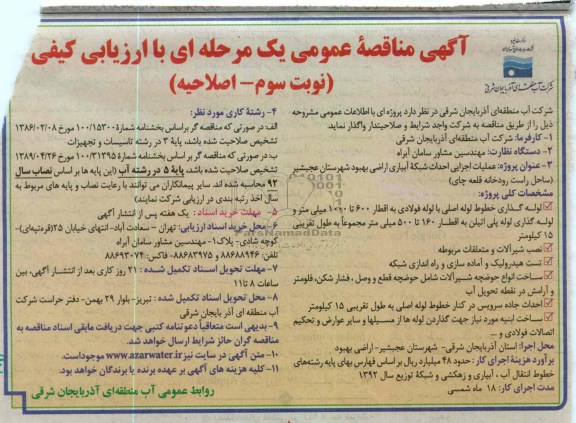 آگهی مناقصهٔ عمومی یک مرحله ای با ارزیابی کیفی
(نوبت سوم- اصلاحیه)
شرکت آب منطقه‌ای آذربایجان شرقی
شرکت آب منطقه‌ای آذربایجان شرقی در نظر دارد پروژه ای با اطلاعات عمومی مشروحه
ذیل را از طریق مناقصه به شرکت واجد شرایط و صلاحیتدار واگذار نماید
۱- کارفرما: شرکت آب منطقه‌ای آذربایجان شرقی
۲- دستگاه نظارت: مهندسین مشاور سامان آبراه
۳- عنوان پروژه: عملیات اجرایی احداث شبکهٔ آبیاری اراضی بهبود شهرستان عجبشیر
(ساحل راست رودخانه قلعه چای)
مشخصات کلی پروژه:
لوله گذاری خطوط لوله اصلی با لوله فولادی به اقطار ۶۰۰ تا ۱۰۰۰ میلی متر و
لوله گذاری لوله پلی اتیلن به اقطار ۱۶۰ تا ۵۰۰ میلی متر مجموعاً به طول تقریبی
۱۵ کیلومتر
نصب شیرآلات و متعلقات مربوطه
تست هیدرولیک و آماده سازی و راه اندازی شبکه
ساخت انواع حوضچه شیرآلات شامل حوضچه قطع و وصل ، فشار شکن، فلومتر
و آرامش در نقطه تحویل آب
احداث جاده سرویس در کنار خطوط لوله اصلی به طول تقریبی ۱۵ کیلومتر
ساخت ابنیه مورد نیاز جهت گذاردن لوله ها از مسیلها و سایر عوارض و تحکیم
اتصالات فولادی و ...
محل اجرا: استان آذربایجان شرقی- شهرستان عجبشیر- اراضی بهبود
برآورد هزینهٔ اجرای کار: حدود ۴۸ میلیارد ریال بر اساس فهارس بهای پایه رشته‌های
خطوط انتقال آب ، آبیاری و زهکشی و شبکهٔ توزیع سال ۱۳۹۲
مدت اجرای کار: ۱۸ ماه شمسی
۴- رشتهٔ کاری مورد نظر:
الف در صورتی که مناقصه گر بر اساس بخشنامه شماره ۱۰۰/۱۵۳۰۰ مورخ ۱۳۸۶/۰۲/۰۸
تشخیص صلاحیت شده باشد، پایهٔ ۳ در رشته تاسیسات و تجهیزات
ب: در صورتی که مناقصه گر بر اساس بخشنامه شماره ۱۰۰/۳۱۳۹۵ مورخ ۱۳۸۹/۰۴/۲۶
تشخیص صلاحیت شده باشد، پایهٔ ۵ در رشته آب (این پایه ها بر اساس نصاب سال
۹۲ محاسبه شده اند. سایر پیمانکاران می توانند با رعایت نصاب و پایه های مربوط به
سال اخذ رتبه بندی در ارزیابی شرکت نمایند)
۵- مهلت خرید اسناد : یک هفته پس از انتشار آگهی
۶- محل خرید اسناد ارزیابی: تهران - سعادت آباد- انتهای خیابان ۳۵(قره‌تپه‌ای)-
کوچه شادی- پلاک ۱- مهندسین مشاور سامان آبراه
تلفن: ۸۸۶۸۸۹۴۶ و ۸۸۶۸۳۹۷۵- فاکس: ۸۸۶۹۳۰۷۴
۷- مهلت تحویل اسناد تکمیل شده : ۲۱ روز کاری بعد از انتشار آگهی، بین
ساعات ۸ تا ۱۱
۸- محل تحویل اسناد تکمیل شده : تبریز- بلوار ۲۹ بهمن- دفتر حراست شرکت
آب منطقه ای آذر بایجان شرقی
۹- بدیهی است متعاقباً دعوتنامه کتبی جهت دریافت مابقی اسناد مناقصه به
مناقصه گران حائز شرایط ارسال خواهد شد.
۱۰- متن آگهی در سایت نیز www.azarwater.ir موجوداست.
۱۱- کلیه هزینه های آگهی بر عهده برنده یا برندگان خواهد بود.
روابط عمومی آب منطقه‌ای آذربایجان شرقی
ParsNamadData